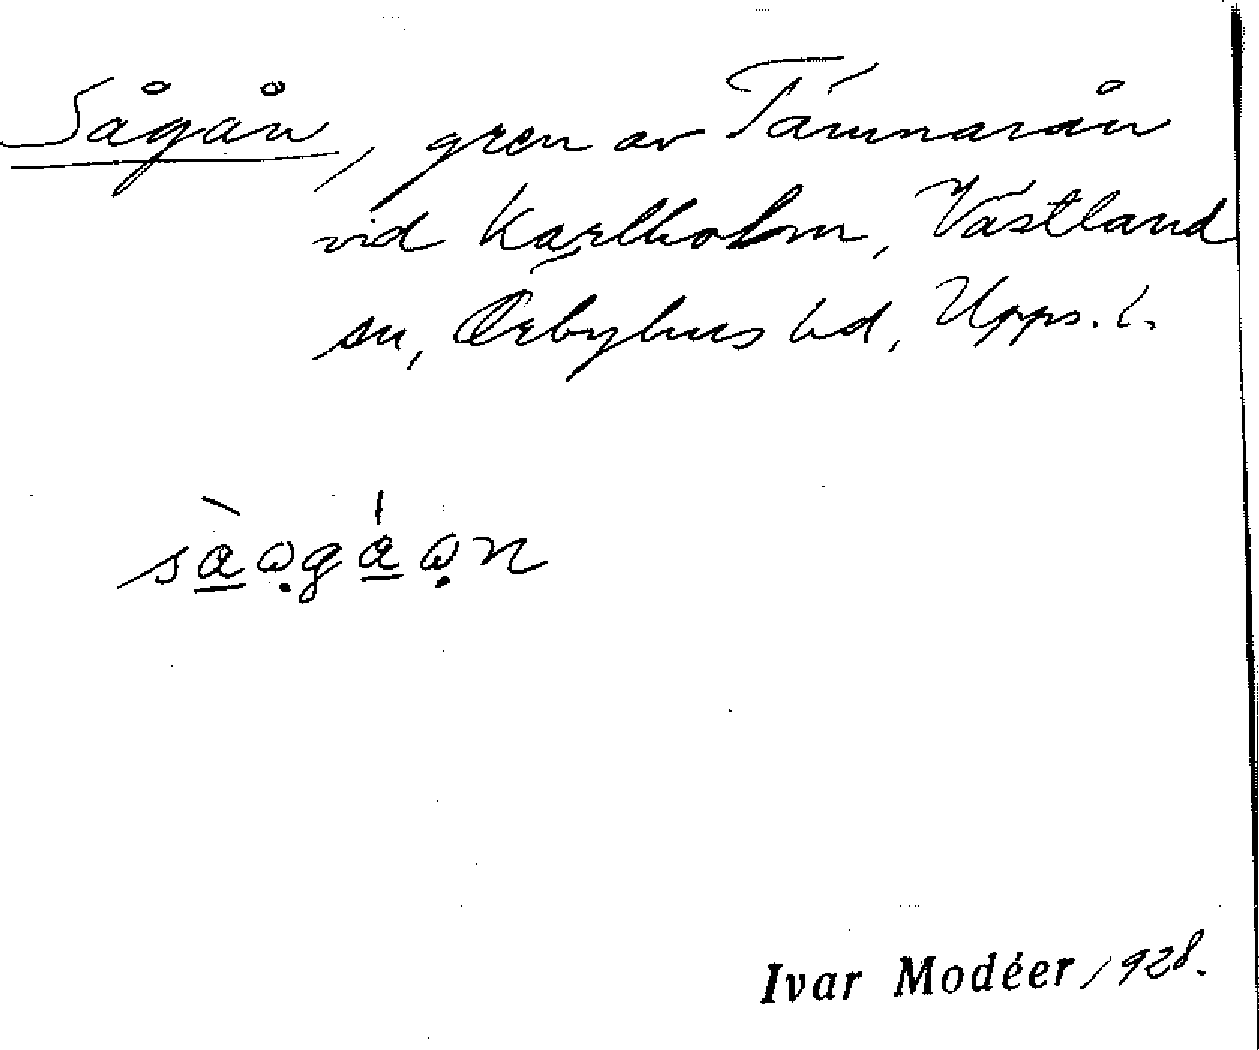 Sågån, gren av Tämnarån
vid Karlholm, Västland
sn, Örbyhus hd, Upps. l.
Ivar Modéer 1928.